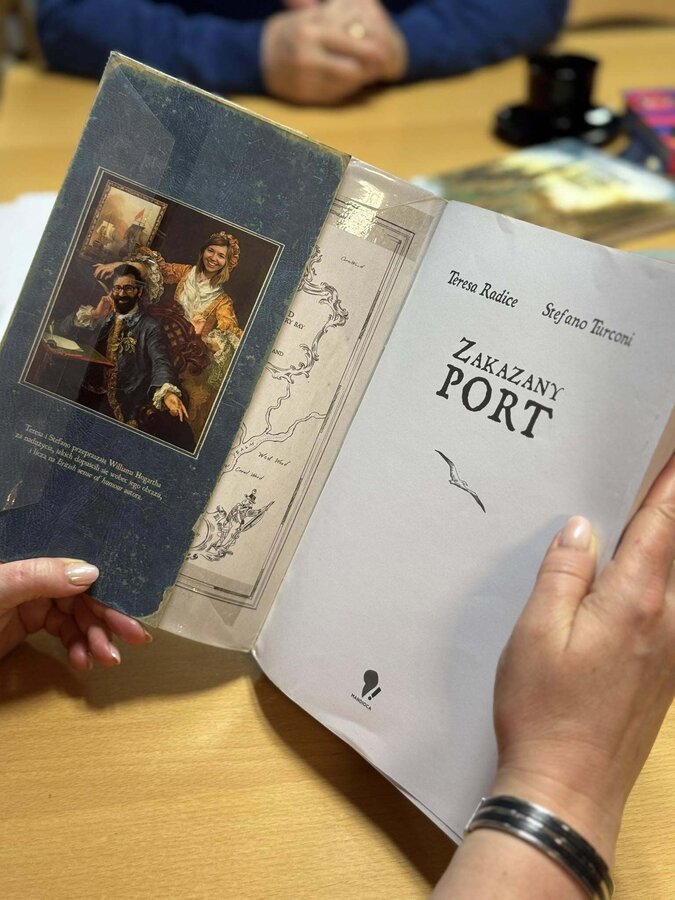 Teresa i Stefano przepraszają Williama Hogartha
za nadużycia, jakich dopuścili się wobec jego obrazu,
i liczą na British sense of humour autora.
AND
West Wind
Teresa Radice Stefano Turconi
ZAKAZANY
PORT
MANDIOCA